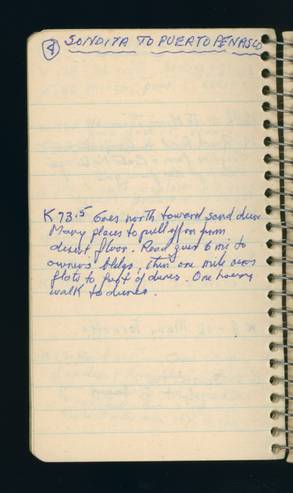 8 SONOITA TO PUERTO PENASCO
K 73.5 Goes north toward sand dune
Many places to pull off on firm
desert floor. Road goes 6 mi to
owners bldgs, then one mile over
flats to foot of dunes. One hour
walk to dunes.